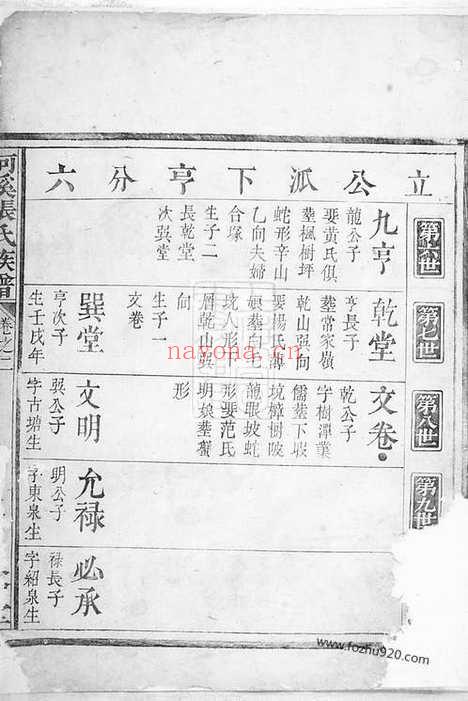 立公派下亨分六
第六世
九亨
龍公子
娶黄氏俱
塟楓樹坪
蛇形辛山
乙向夫婦
合塚
生子二
長乾堂
次巽堂
第七世
乾堂
亨長子
塟常家嶺
乾山巽向
娶楊氏
塟白毛
坑人形
乾山巽
向
生子一
文卷
巽堂
亨次子
生壬戌年
第八世
文卷
乾公子
字樹潭業
儒塟下塅
坑樟樹
龍眼坡蛇
形娶范氏
明娘塟
形
文明
巽公子
字古塘生
第九世
允禄
明公子
字東泉生
必承
禄長子
字紹泉生
河溪張氏族譜
卷之二
nayona.cn
www.fozhu920.com